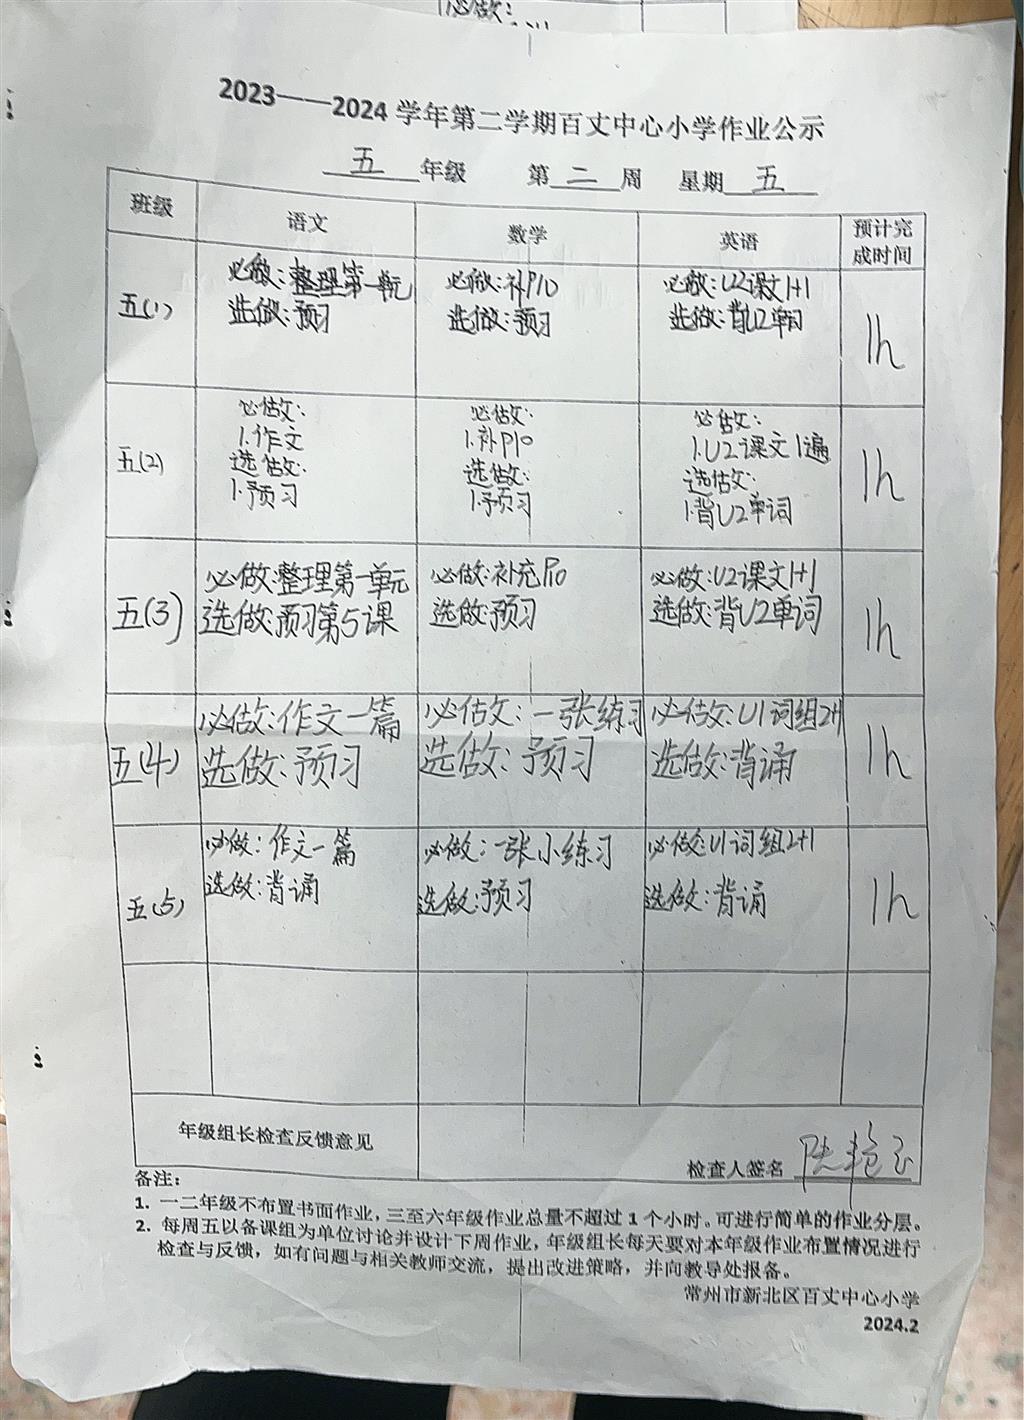 必做:
2023——2024 学年第二学期百丈中心小学作业公示
五 年级 第 二 周 星期 五
班级 语文 数学 英语 预计完成时间
五(1)
必做:整理第一单元
选做:预习
必做:补P10
选做:预习
必做:U2课文1+1
选做:背U2单词
1h
五(2)
必做:
1.作文
选做:
1.预习
必做:
1.补P10
选做:
1.预习
必做:
1.U2课文1遍
选做:
1.背U2单词
1h
五(3)
必做:整理第一单元
选做:预习第5课
必做:补充P10
选做:预习
必做:U2课文1+1
选做:背U2单词
1h
五(4)
必做:作文一篇
选做:预习
必做:一张练习
选做:预习
必做:U1词组2+1
选做:背诵
1h
五(5)
必做:作文一篇
选做:背诵
必做:一张小练习
选做:预习
必做:U1词组2+1
选做:背诵
1h
年级组长检查反馈意见
检查人签名
备注:
1. 一二年级不布置书面作业,三至六年级作业总量不超过 1 个小时。可进行简单的作业分层。
2. 每周五以备课组为单位讨论并设计下周作业,年级组长每天要对本年级作业布置情况进行
检查与反馈,如有问题与相关教师交流,提出改进策略,并向教导处报备。
常州市新北区百丈中心小学
2024.2